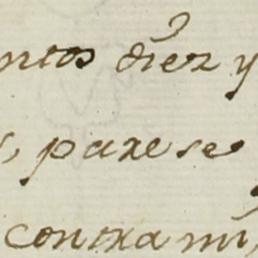 ntos diez y
, paxese
contxa mi,